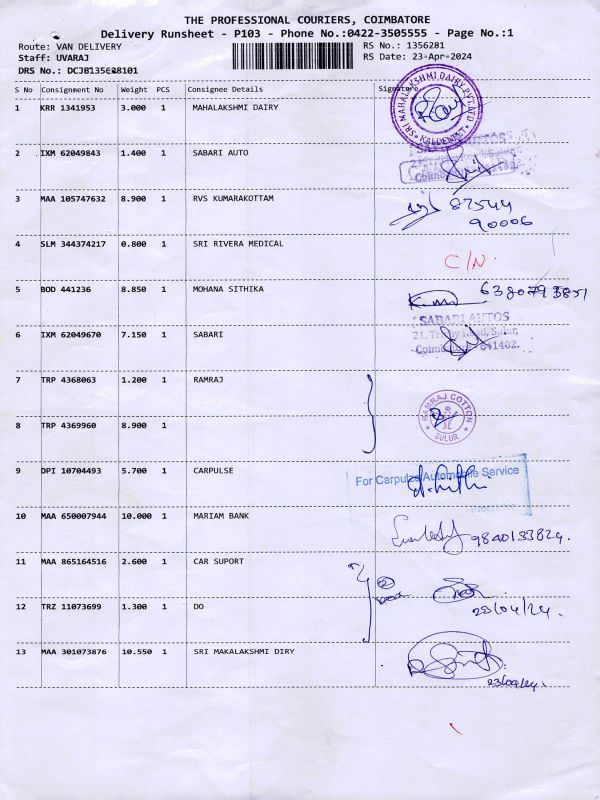 THE PROFESSIONAL COURIERS, COIMBATORE
Delivery Runsheet - P103 - Phone No.:0422-3505555 - Page No.:1
Route: VAN DELIVERY
RS No.: 1356281
Staff: UVARAJ
RS Date: 23-Apr-2024
DRS No.: DCJB1356281O1
S No Consignment No Weight PCS Consignee Details Signature
1 KRR 1341953 3.000 1 MAHALAKSHMI DAIRY
SRI MAHALAKSHMI DAIRY PVT.LTD
2 IXM 62049843 1.400 1 SABARI AUTO
3 MAA 105747632 8.900 1 RVS KUMARAKOTTAM
87544
90006
4 SLM 344374217 0.800 1 SRI RIVERA MEDICAL
C/N.
5 BOD 441236 8.850 1 MOHANA SITHIKA
6380793851
SABARI AUTOS
6 IXM 62049670 7.150 1 SABARI
21, Trichy Road, Sulur,
Coimbatore - 641402.
7 TRP 4368063 1.200 1 RAMRAJ
RAMRAJ COTTON
SULUR
8 TRP 4369960 8.900 1
9 DPI 10704493 5.700 1 CARPULSE
For Carpulze Automobile Service
10 MAA 650007944 10.000 1 MARIAM BANK
9840133824.
11 MAA 865164516 2.600 1 CAR SUPORT
2
12 TRZ 11073699 1.300 1 DO
23/04/24.
13 MAA 301073876 10.550 1 SRI MAKALAKSHMI DIRY
23/04/24.